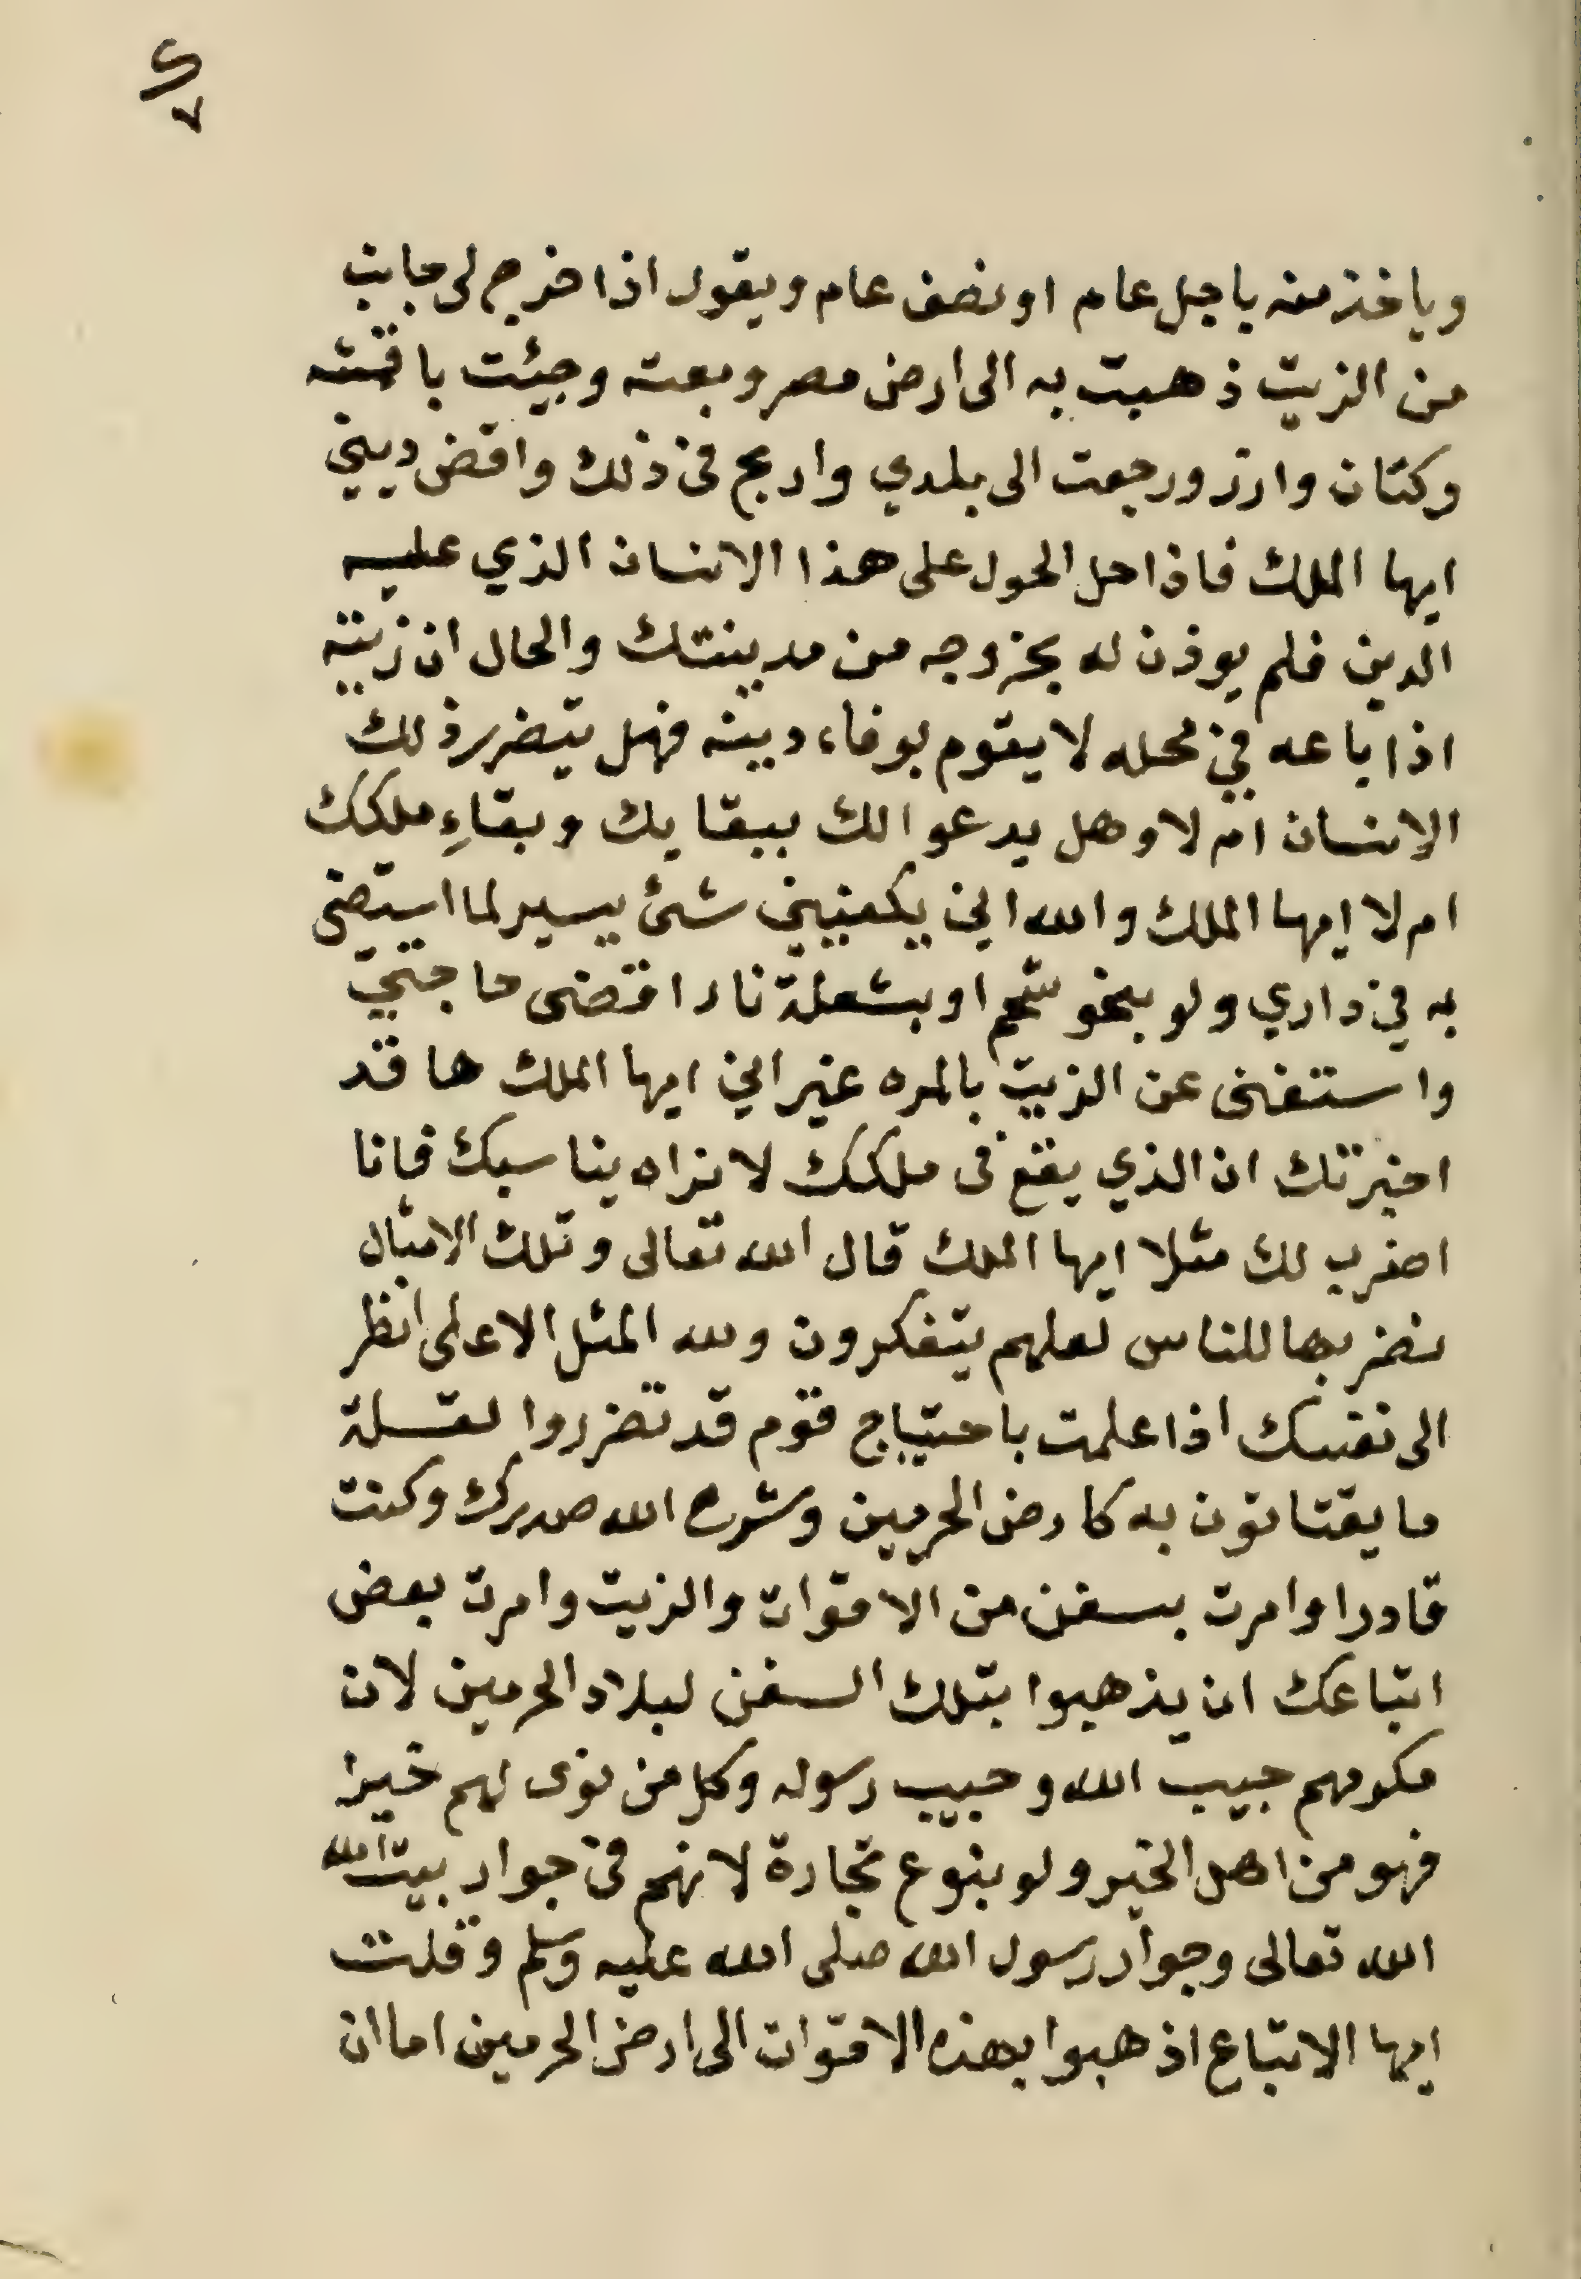 وياخذ منه باجل عام او نصف عام ويقول اذا خرج لى جانب
من الزيت ذهبت به الى ارض مصر وبعته وجيئت باقمشه
وكتان وارز ورجعت الى بلدي واربح فى ذلك واقض دينى
ايها الملك فاذا حل الحول على هذا الانسان الذي عليه
الدين فلم يوذن له بخروجه من مدينتك والحال ان زيته
اذا باعه في محله لا يقوم بوفاء دينه فهل يتضرر ذلك
الانسان ام لا وهل يدعوا لك ببقايك وبقاءِ ملكك
ام لا ايها الملك والله اني يكفيني شئ يسير لما استضئ
به في داري ولو بنحو شحم او بشعلة نار اقتضى حاجتي
واستغنى عن الزيت بالمره غير اني ايها الملك ها قد
اخبرتك ان الذي يقع فى ملكك لا نراه يناسبك فانا
اضرب لك مثلا ايها الملك قال الله تعالى وتلك الامثال
نضربها للناس لعلهم يتفكرون ولله المثل الاعلى انظر
الى نفسك اذا علمت باحتياج قوم قد تضرروا لقلة
ما يقتاتون به كارض الحرمين وشرح الله صدرك وكنت
قادرا وامرت بسفن من الاقوات والزيت وامرت بعض
اتباعك ان يذهبوا بتلك السفن لبلاد الحرمين لان
مكرمهم حبيب الله وحبيب رسوله وكل من نوى لهم خيرا
فهو من اهل الخير ولو بنوع تجارة لانهم فى جوار بيت الله
الله تعالى وجوار رسول الله صلى الله عليه وسلم وقلت
ايها الاتباع اذهبوا بهذه الاقوات الى ارض الحرمين اما ان